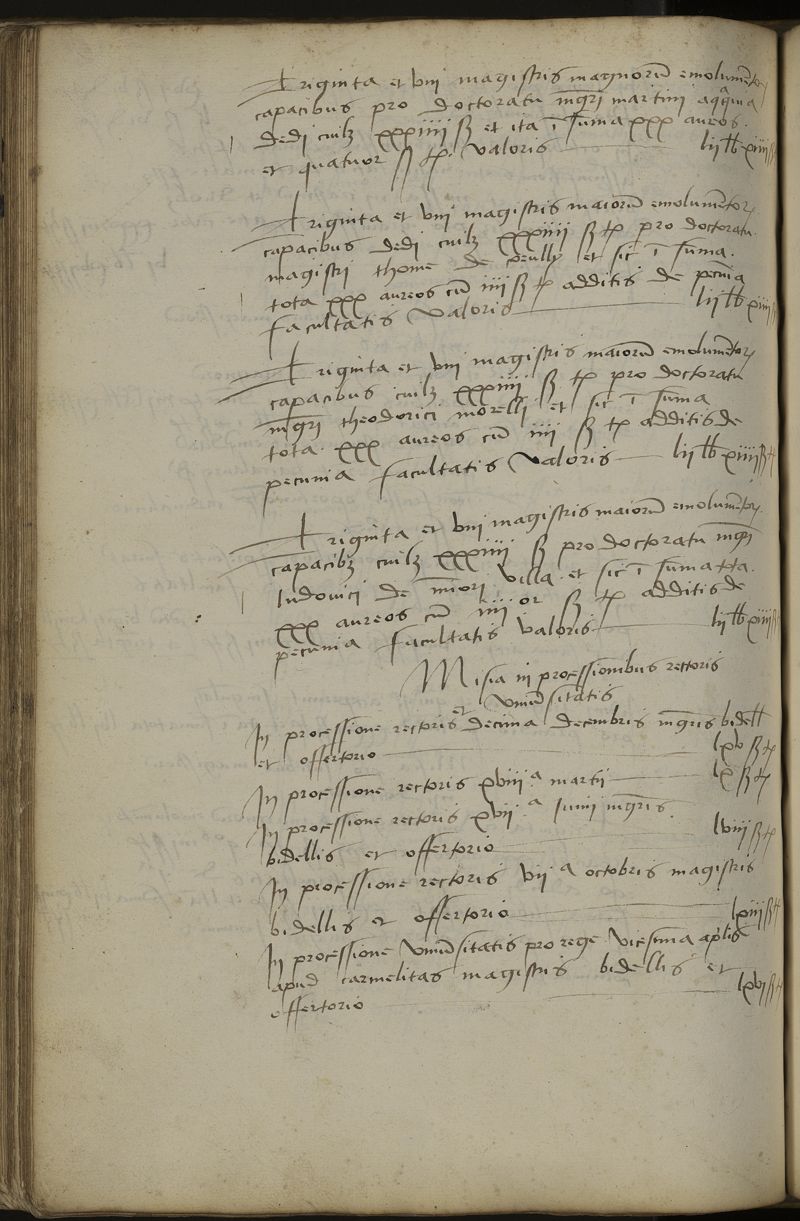 Triginta et viii magistris magnorũ emolumẽtorꝝ
capacibus pro doctoratu mg̃ri martini
dedi cuilꝫ xxxiiii ß et ita ĩ sũma xxx aureos.
et quatuor ß tꝑ. valoris lii lb xiiii ß
Triginta et viii magistris maiorũ emolumẽtorꝝ
capacibus dedi cuilꝫ xxxiiii ß tꝑ pro doctoratu
magistri thome de et sic ĩ sũma.
tota xxx aureos cũ iiii ß tꝑ additis de pecũia
facultatis valoris lii lb xiiii ß
Triginta et viii magistris maiorũ emolumẽtorꝝ
capacibus cuilꝫ xxxiiii ß tꝑ pro doctoratu
mg̃ri theodorici morelli et sic ĩ sũma
tota xxx aureos cũ iiii ß tꝑ additis de
pecunia facultatis valoris lii lb xiiii ß tꝑ
Triginta et viii magistris maiorũ emolumẽtorꝝ
capacibꝫ cuilꝫ xxxiiii ß pro doctoratu mg̃ri
ludovici de villa et sic ĩ sũma tota.
xxx aureos cũ iiii or ß tꝑ additis de
pecunia facultatis valoris lii lb xiiii ß
Misia in processionibus rectoris
et univĩsitatis
In processione rectoris decima decembris mg̃ris bidell
et offertorio lxv ß tꝑ
In processione rectoris xviii.a martii lx ß tꝑ
In processione rectoris xvii.a Iunii mg̃ris.
bidellis et offertorio lviii ß tꝑ
In processione rectoris vii a octobris magistris
bidellis et offertorio lxiii ß tꝑ
In processione univĩsitatis pro rege vicesima aplis
apud carmelitas magistris bidellis et
offertorio lxvi ß tꝑ